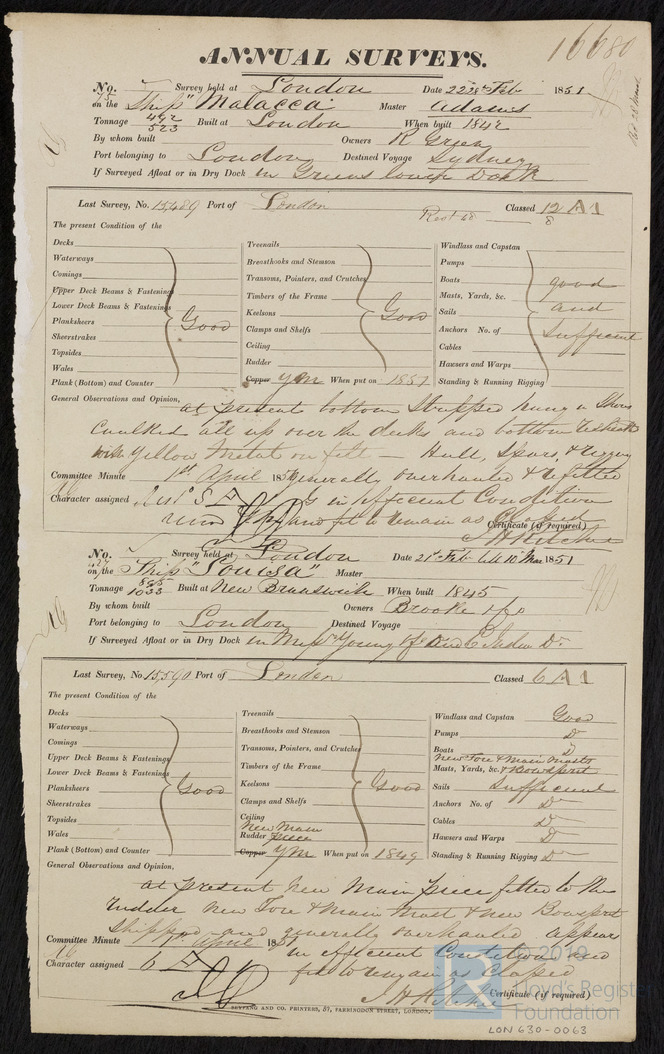 ANNUAL SURVEYS.
16680
No. Survey held at London Date 22 28 Feb 1851
on the Ship "Malacca" Master Adams
Tonnage 492 523 Built at London When built 1842
By whom built Owners R Green
Port belonging to London Destined Voyage Sydney
If Surveyed Afloat or in Dry Dock in Greens lower Dock
Last Survey, No. 15,489 Port of London Classed 12 A1
8
The present Condition of the
Decks
Waterways
Comings
Upper Deck Beams & Fastenings
Lower Deck Beams & Fastenings
Planksheers Good
Sheerstrakes
Topsides
Wales
Plank (Bottom) and Counter
Treenails
Breasthooks and Stemson
Transoms, Pointers, and Crutches
Timbers of the Frame
Keelsons Good
Clamps and Shelfs
Ceiling
Rudder
Copper YM When put on 1851
Windlass and Capstan
Pumps
Boats good
Masts, Yards, &c.
Sails and
Anchors No. of
Cables Sufficient
Hawsers and Warps
Standing & Running Rigging
General Observations and Opinion,
at present bottom stripped hung in Shores
Caulked all up over the decks and bottom
with Yellow Metal on felt — Hull, Spars, & Rigging
Committee Minute 1st April 1851 generally overhauled & refitted
Character assigned is in efficient Condition
and fit to remain as Classed
Certificate (if required)
J H Ritchie
No. Survey held at London Date 21st Feb till 10th Mar 1851
on the Ship "Louisa" Master
Tonnage 1033 Built at New Brunswick When built 1845
By whom built Owners Brooke & Co
Port belonging to London Destined Voyage
If Surveyed Afloat or in Dry Dock in Mess Young
Last Survey, No 15,590 Port of London Classed 6 A1
The present Condition of the
Decks
Waterways
Comings
Upper Deck Beams & Fastenings
Lower Deck Beams & Fastenings
Planksheers Good
Sheerstrakes
Topsides
Wales
Plank (Bottom) and Counter
Treenails
Breasthooks and Stemson
Transoms, Pointers, and Crutches
Timbers of the Frame
Keelsons Good
Clamps and Shelfs
Ceiling
New Main
Rudder piece
Copper YM When put on 1849
Windlass and Capstan Good
Pumps Do
Boats Do
New Fore & Main Masts
Masts, Yards, &c. & Bowsprit
Sails Sufficient
Anchors No. of Do
Cables Do
Hawsers and Warps Do
Standing & Running Rigging Do
General Observations and Opinion,
at present New Main piece fitted to the
Rudder New Fore & Main Mast & New Bowsprit
Shipped and generally overhauled appears
Committee Minute 1st April 1851 in efficient Condition and
Character assigned 6 A fit to remain as Classed
J H Ritchie Certificate (if required)
SEYFANG AND CO. PRINTERS, 57, FARRINGDON STREET, LONDON.
© 2019
Lloyd's Register
Foundation
LON 630-0063